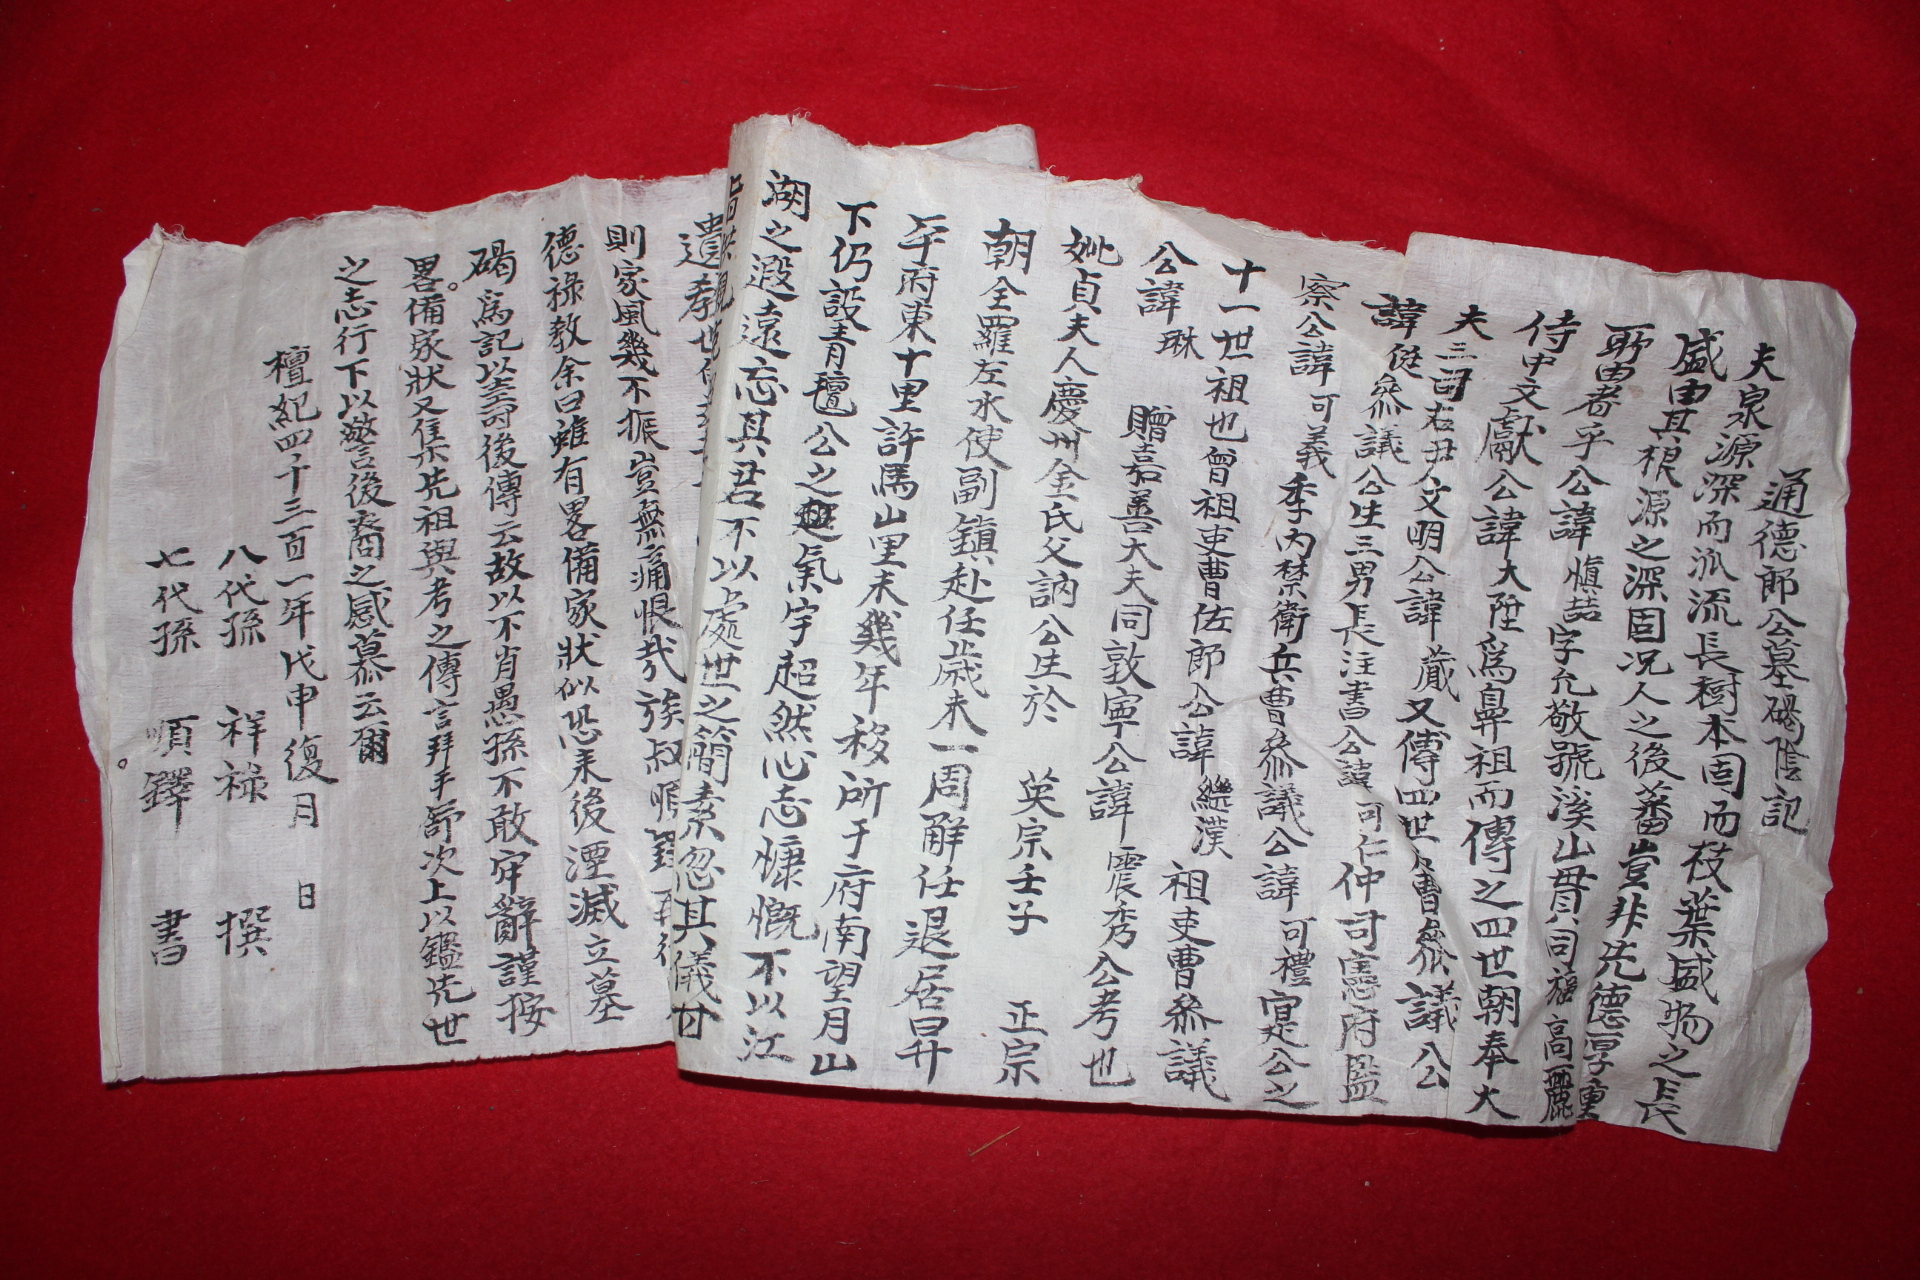 通德郎公墓碣陰記
夫泉源深而泒流長樹本固而枝葉盛物之長
盛由其根源之深固况人之後蕃豈非先德厚重
所由者乎公諱慎喆字允敬號溪山貫司福高麗
侍中文獻公諱大陞爲鼻祖而傳之四世朝奉大
夫三司右尹文明公諱蕆又傳四世吏曹叅議公
諱侹叅議公生三男長注書公諱可仁仲司憲府監
察公諱可義季內禁衛兵曹叅議公諱可禮寔公之
十一世祖也曾祖吏曹佐郎公諱繼漢祖吏曹叅議
公諱琳贈嘉善大夫同敦寧公諱震秀公考也
妣貞夫人慶州金氏父訥公生於英宗壬子正宗
朝全羅左水使副鎮赴任歲未一周解任退居曰升
午府東十里許馬山里未幾年移所于府南望月山
下仍設青氊公之氣宇超然心志慷慨不以江
湖之遐遠忘其君不以處世之簡素忽其儀甘
遺孝世
則家風幾不振豈無痛恨㢤族叔順鐸
德祿教余曰雖有畧備家狀似恐未後湮滅立墓
碣爲記以壽後傳云故以不肖愚孫不敢牢辭謹按
畧備家狀又隹示先祖與考之傳言拜手舒次上以鑑先世
之志行下以警後裔之感慕云爾
檀紀四千三百一年戊申復月 日
八代孫 祥祿 撰
七代孫 順鐸 書